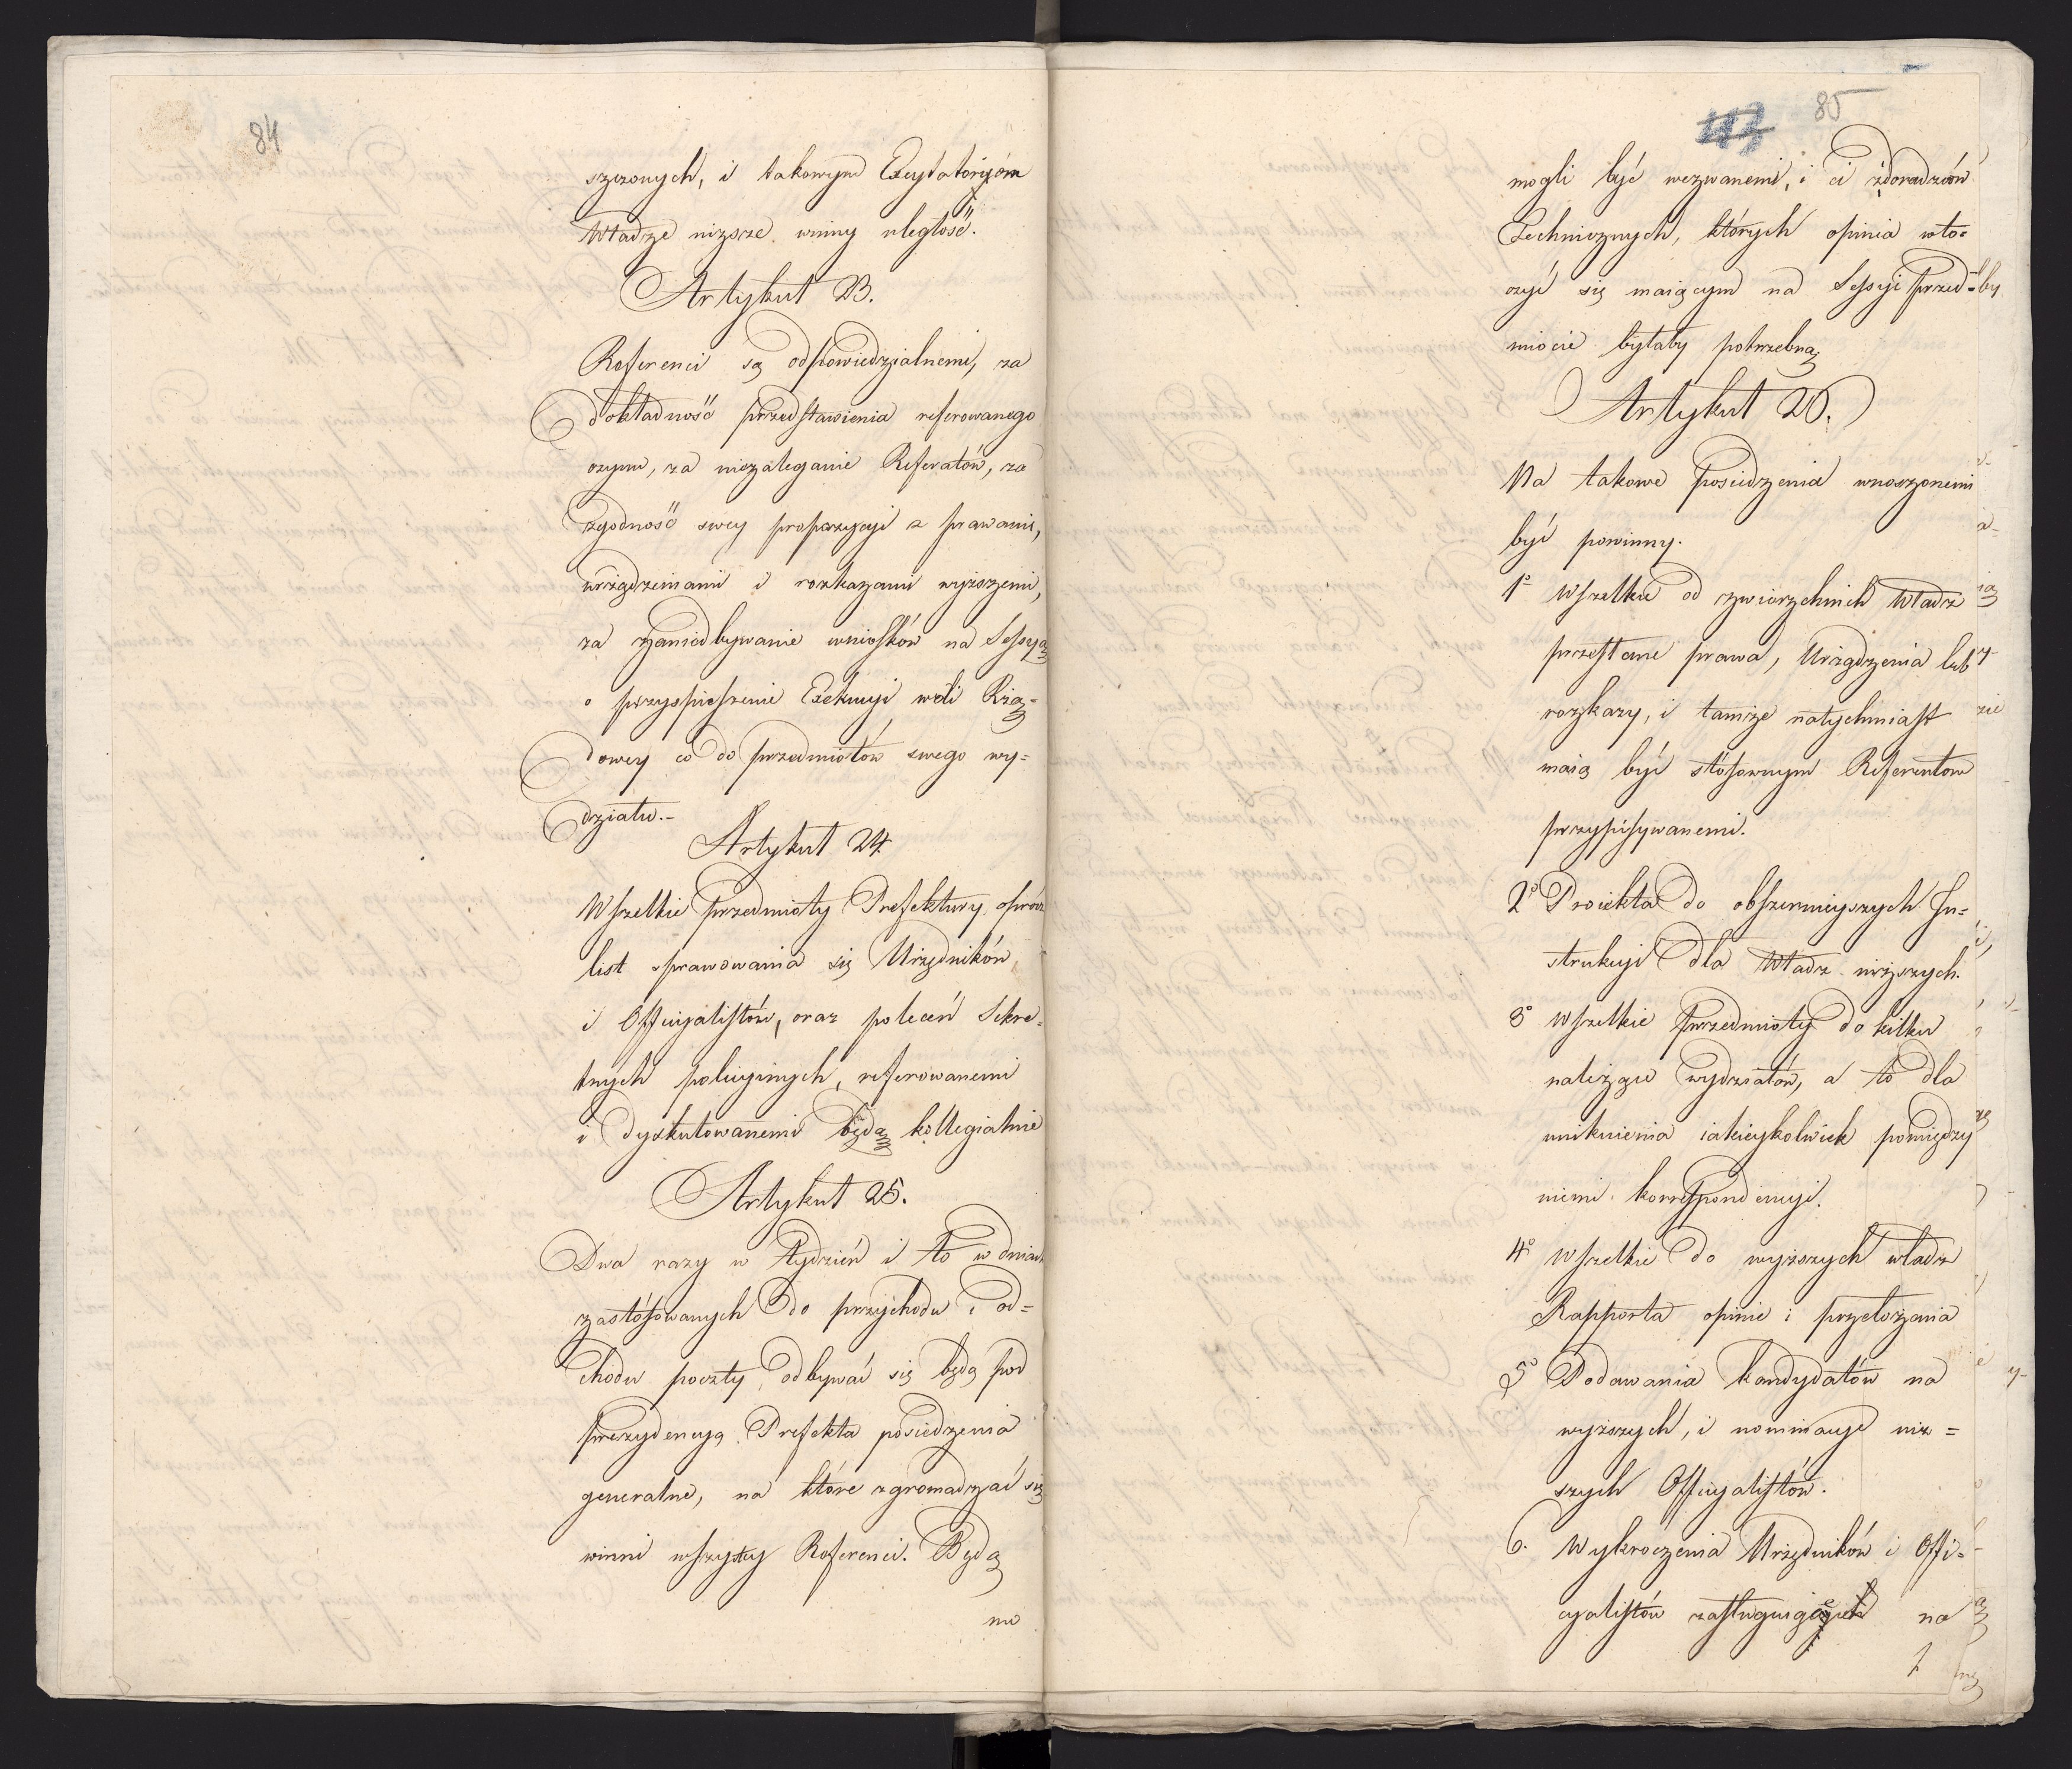 84
szczonych, i takowym Excytatoryjóm
Władze nizsze winny uległość.
Artykuł 23.
Referenci są odpowiedzialnemi, za
dokładność przedstawienia referowanego
czynu, za niezaleganie Referatów, za
zgodność swey propozycyi z prawami,
urządzeniami i rozkazami wyższemi,
za zaniedbywanie wniosków na Sessyą
o przyspieszenie Exekucyi woli Rzą=
dowey co do przedmiotów swego wy=
działu.-
Artykuł 24
Wszelkie przedmioty Prefektury oprócz
list sprawowania się Urzędników
i Officyalistów, oraz poleceń Sekre=
tnych policyinych, referowanemi
i dyskutowanemi będą kollegialnie
Artykuł 25.
Dwa razy w tydzień i to w dniach
zastósowanych do przychodu i od=
chodu poczty, odbywać się będą pod
prezydencyą Prefekta posiedzenia
generalne, na które zgromadzać się
winni wszyscy Referenci. Będą
mo
85
mogli być wezwanemi, i ci z doradzców
Technicznych, których opinia wto=
czyć się maiącym na Sessyi przed=
miocie byłaby potrzebną
Artykuł 26.
Na takowe posiedzenia wnoszonemi
być powinny.
1º Wszelkie od zwierzchnich Władz
przesłane prawa, Urządzenia lub
rozkazy, i tamże natychmiast
maią być stósownym Referentom
przypisywanemi.
2º Proiekta do obszernieyszych In=
strukcyi dla Władz niższych.
3º Wszelkie przedmioty do kilku
należące wydziałów, a to dla
uniknienia iakieykolwiek pomiędzy
niemi korrespondencyi.
4º Wszelkie do wyższych władz
Rapporta opinie i przełożenia
5º Podawania kandydatów na
wyższych, i nominacye niż=
szych Officyalistów.
6. Wykroczenia Urzędników i Offi=
cyalistów zasługuiące na